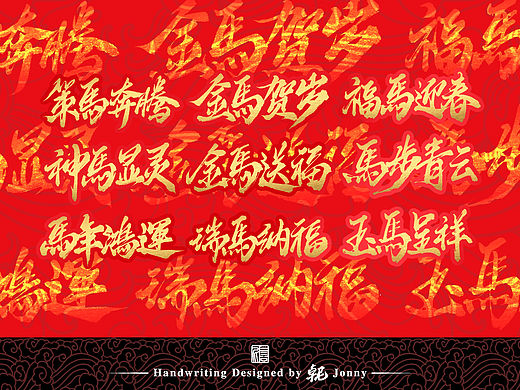 奔腾 金馬贺岁 福馬
策馬奔腾 金馬贺岁 福馬迎春
神馬显灵 金馬送福 馬步青云
馬年鴻運 瑞馬纳福 玉馬呈祥
鴻運 瑞馬纳福 玉馬
Handwriting Designed by 乾 Jonny